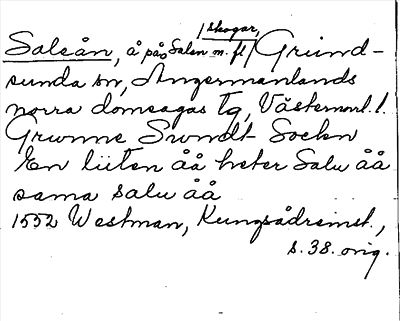 skogar,
Saleån, å på Salen m. fl. Grund-
sunda sn, Ångermanlands
norra domsagas tg, Västernorrl. l.
Grwnne Swndt Sockn
En liiten åå heter Salu åå
sama salu åå
1552 Westman, Kungsådreinst.,
s. 38. orig.